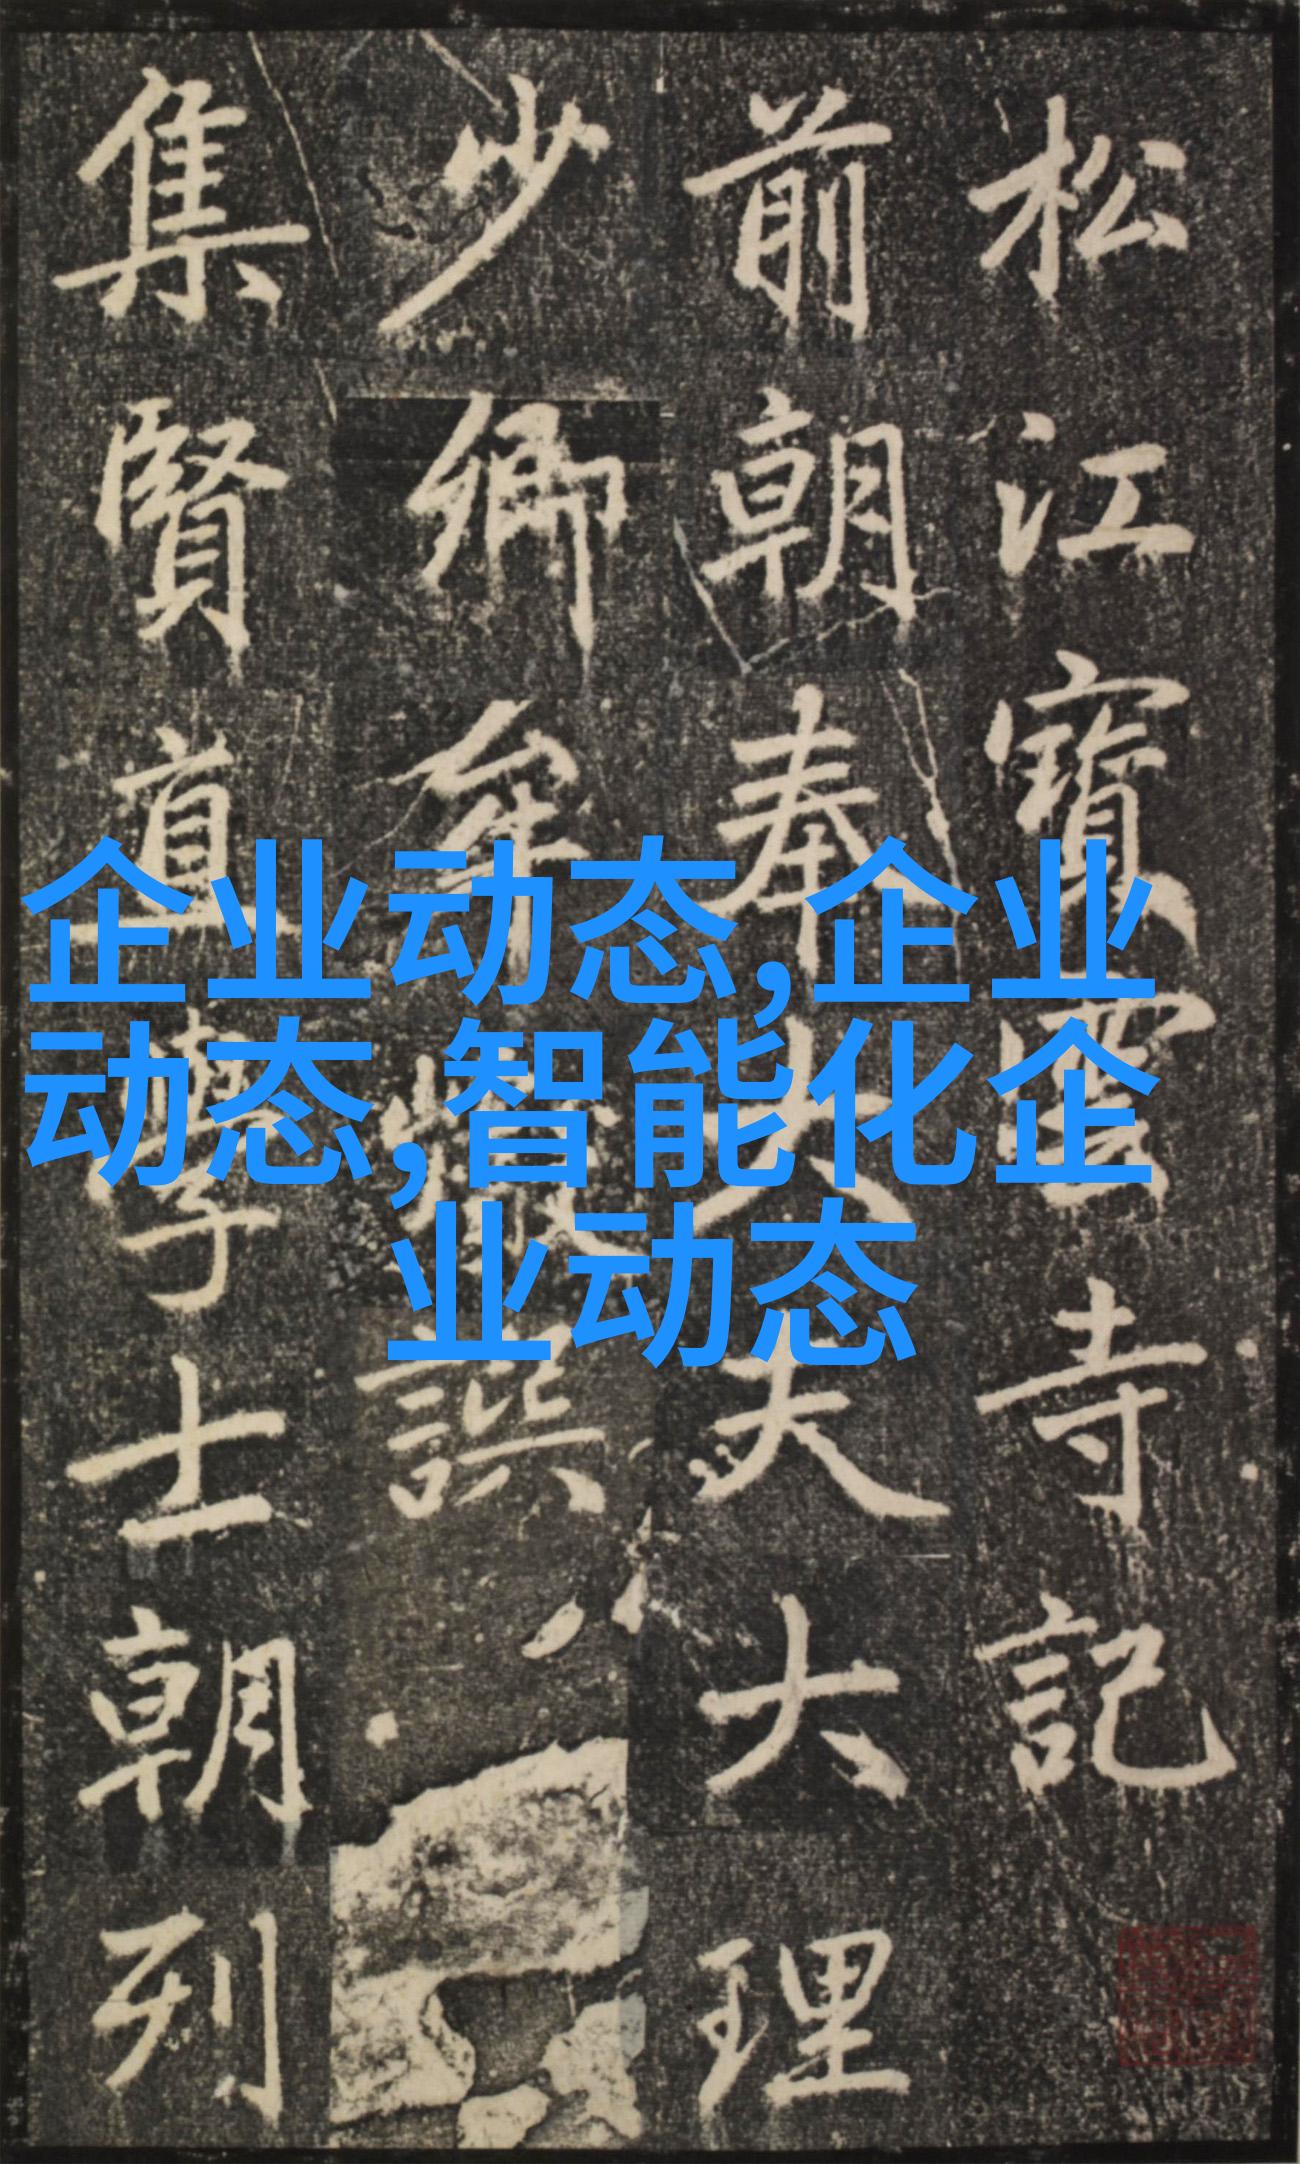 松江寶雲寺記
前朝奉大夫大理
少卿牟巘譔
集賢直學士朝列
企业动态,企业
动态,智能化企
业动态